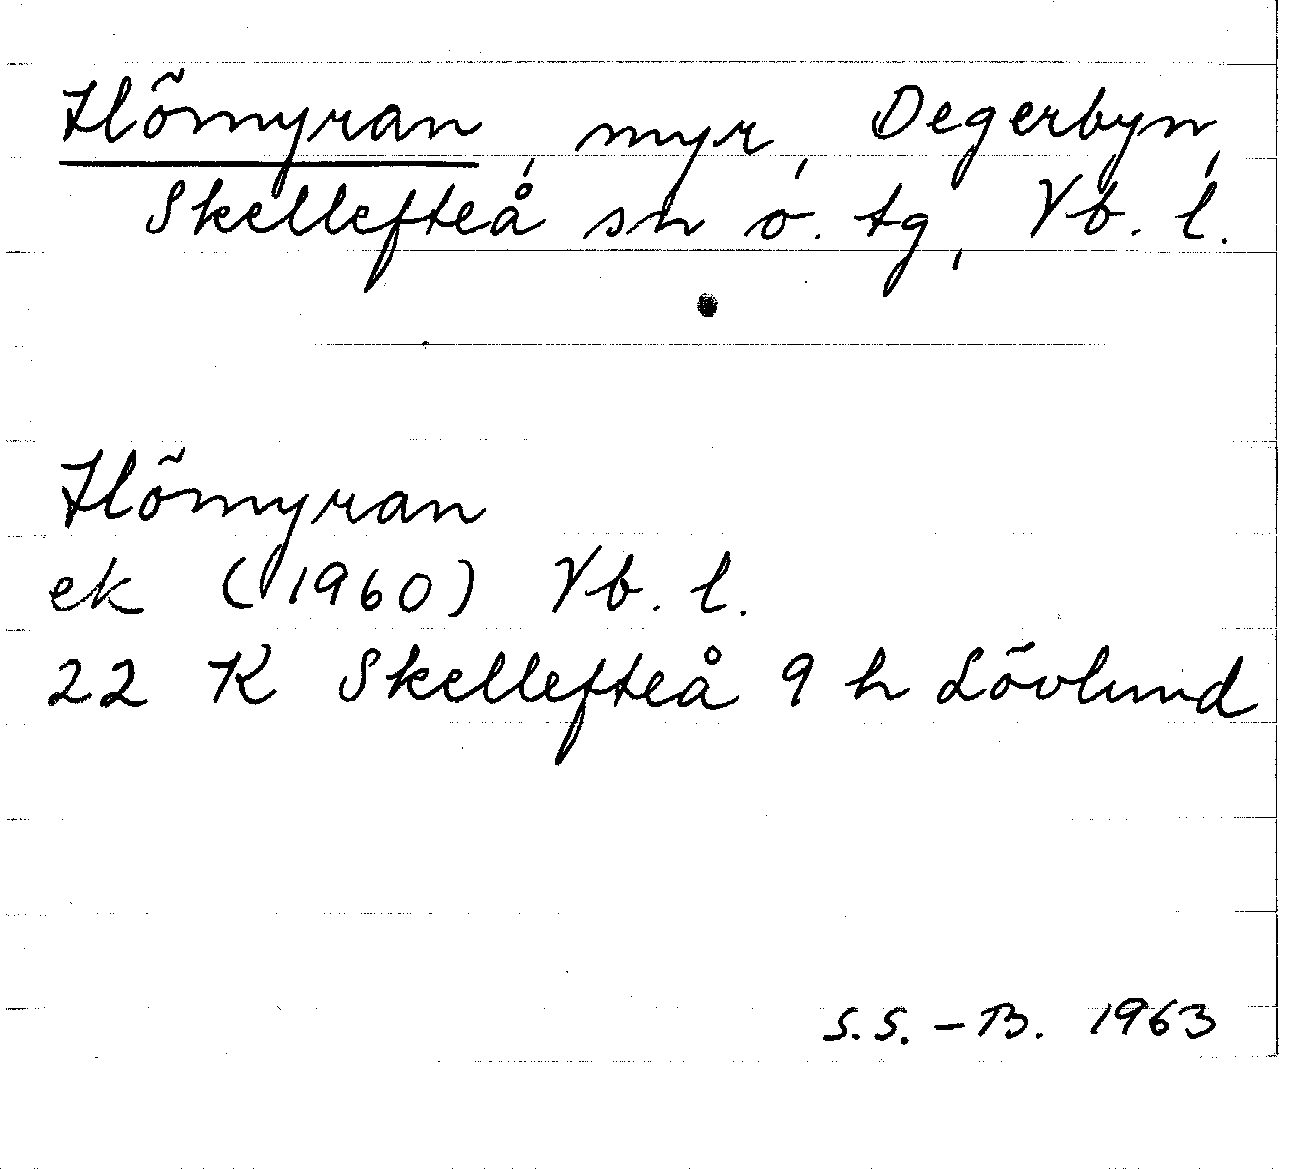 Hömyran, myr, Degerbyn,
Skellefteå sn o. tg, Vb. l.
Hömyran
ek (1960) Vb. l.
22 K Skellefteå 9 h Lövlund
S.S.-B. 1963